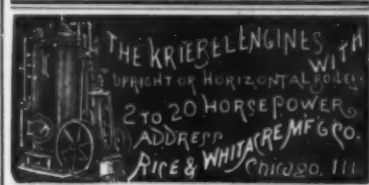 THE KRIEBEL ENGINES WITH
UPRIGHT OR HORIZONTAL BOILER
2 TO 20 HORSE POWER
ADDRESS
RICE & WHITACRE M'F'G CO.
Chicago, Ill